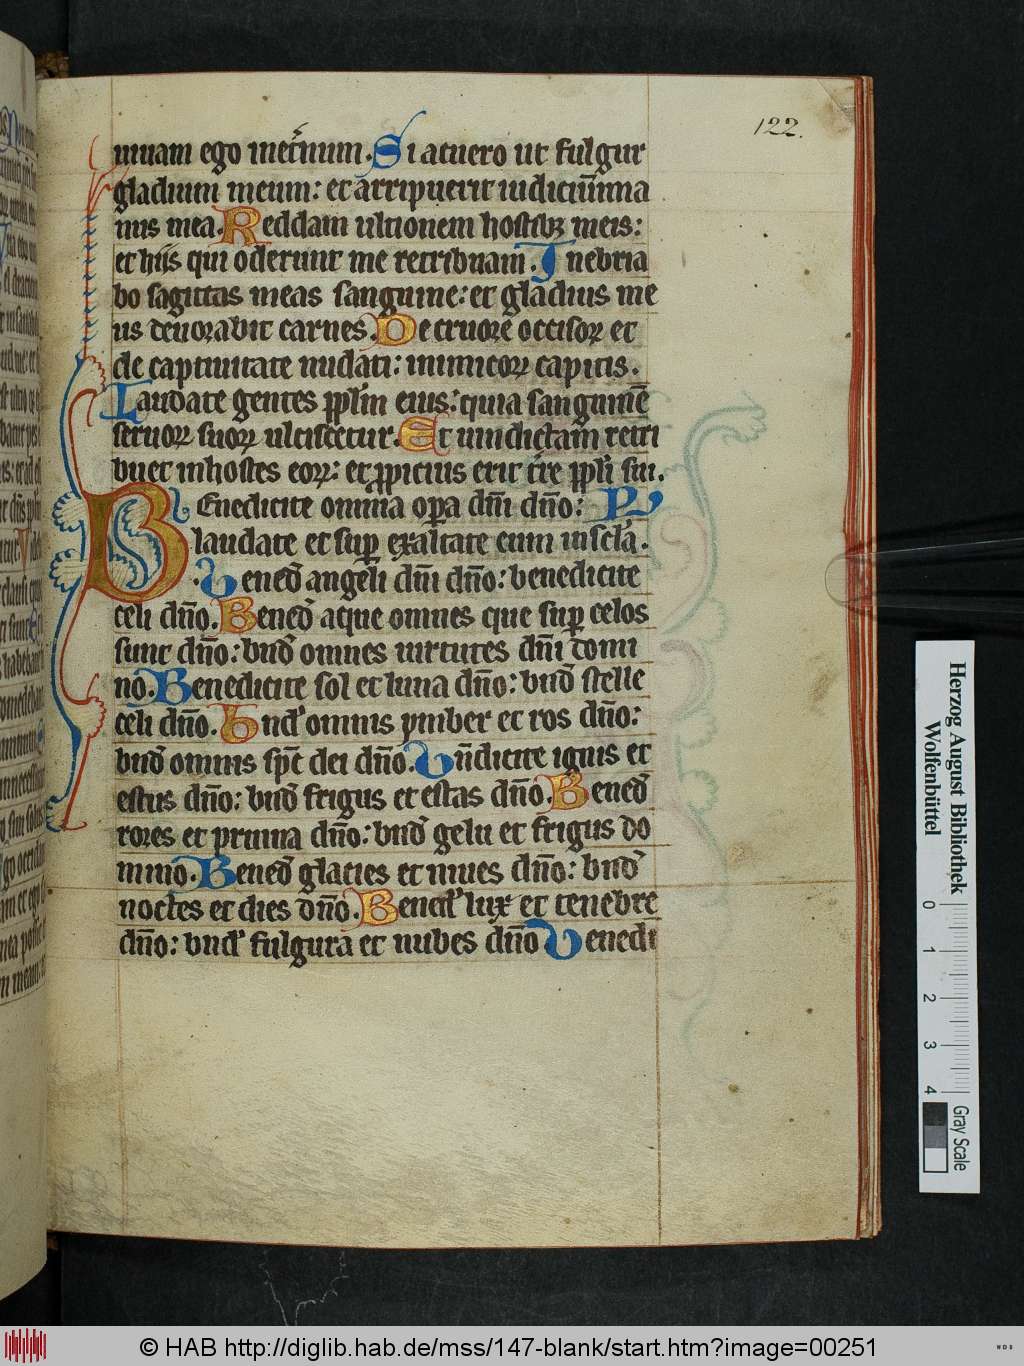 122.
uiuam ego inet̾num. Si acuero ut fulgur
gladium meum: et arripuerit iudiciū ma
nus mea. Reddam ultionem hostibꝫ meis:
et hiis qui oderunt me retribuam. Inebria
bo sagittas meas sanguine: et gladius me
us deuorabit carnes. De cruore occisoꝝ et
de captiuitate nudati: inimicoꝝ capitis.
Laudate gentes pp̄lm eius: quia sanguinē
seruoꝝ suoꝝ ulciscetur. Et uindictam retri
buet in hostes eoꝝ: et ꝓpicius erit t̾re pp̄li sui.
Benedicite omnia oꝑa dn̄i dn̄o:
laudate et suꝑ exaltate eum in scl̾a.
Bened̾ angeli dn̄i dn̄o: benedicite
celi dn̄o. Bened̾ aque omnes que suꝑ celos
sunt dn̄o: bnd̾ omnes uirtutes dn̄i domi
no. Benedicite sol et luna dn̄o: bnd̾ stelle
celi dn̄o. Bnd̾ omnis ymber et ros dn̄o:
bnd̾ omnis sp̄c dei dn̄o. Bn̄dicite ignis et
estus dn̄o: bnd̾ frigus et estas dn̄o. Bened̾
rores et pruina dn̄o: bnd̾ gelu et frigus do
mino. Bened̾ glacies et niues dn̄o: bnd̾
noctes et dies dn̄o. Bened̾ lux et tenebre
dn̄o: bnd̾ fulgura et nubes dn̄o Benedi
Herzog August Bibliothek
Wolfenbüttel
0 1 2 3 4
Gray Scale
© HAB http://diglib.hab.de/mss/147-blank/start.htm?image=00251